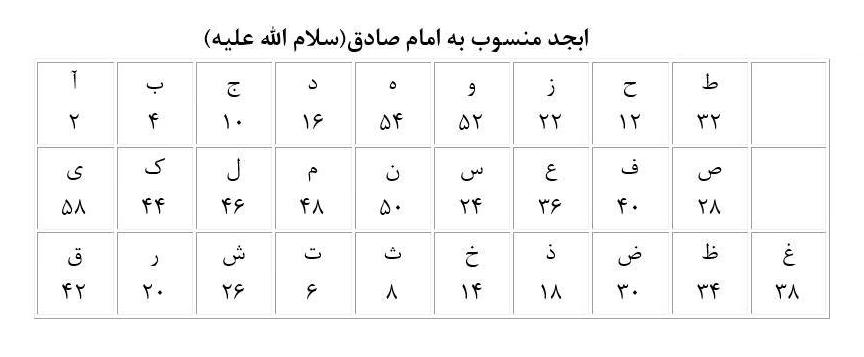 ابجد منسوب به امام صادق(سلام الله علیه)
ط ح ز و ه د ج ب آ
۳۲ ۱۲ ۲۲ ۵۲ ۵۴ ۱۶ ۱۰ ۴ ۲
ص ف ع س ن م ل ک ی
۲۸ ۴۰ ۳۶ ۲۴ ۵۰ ۴۸ ۴۶ ۴۴ ۵۸
غ ظ ض ذ خ ث ت ش ر ق
۳۸ ۳۴ ۳۰ ۱۸ ۱۴ ۸ ۶ ۲۶ ۲۰ ۴۲